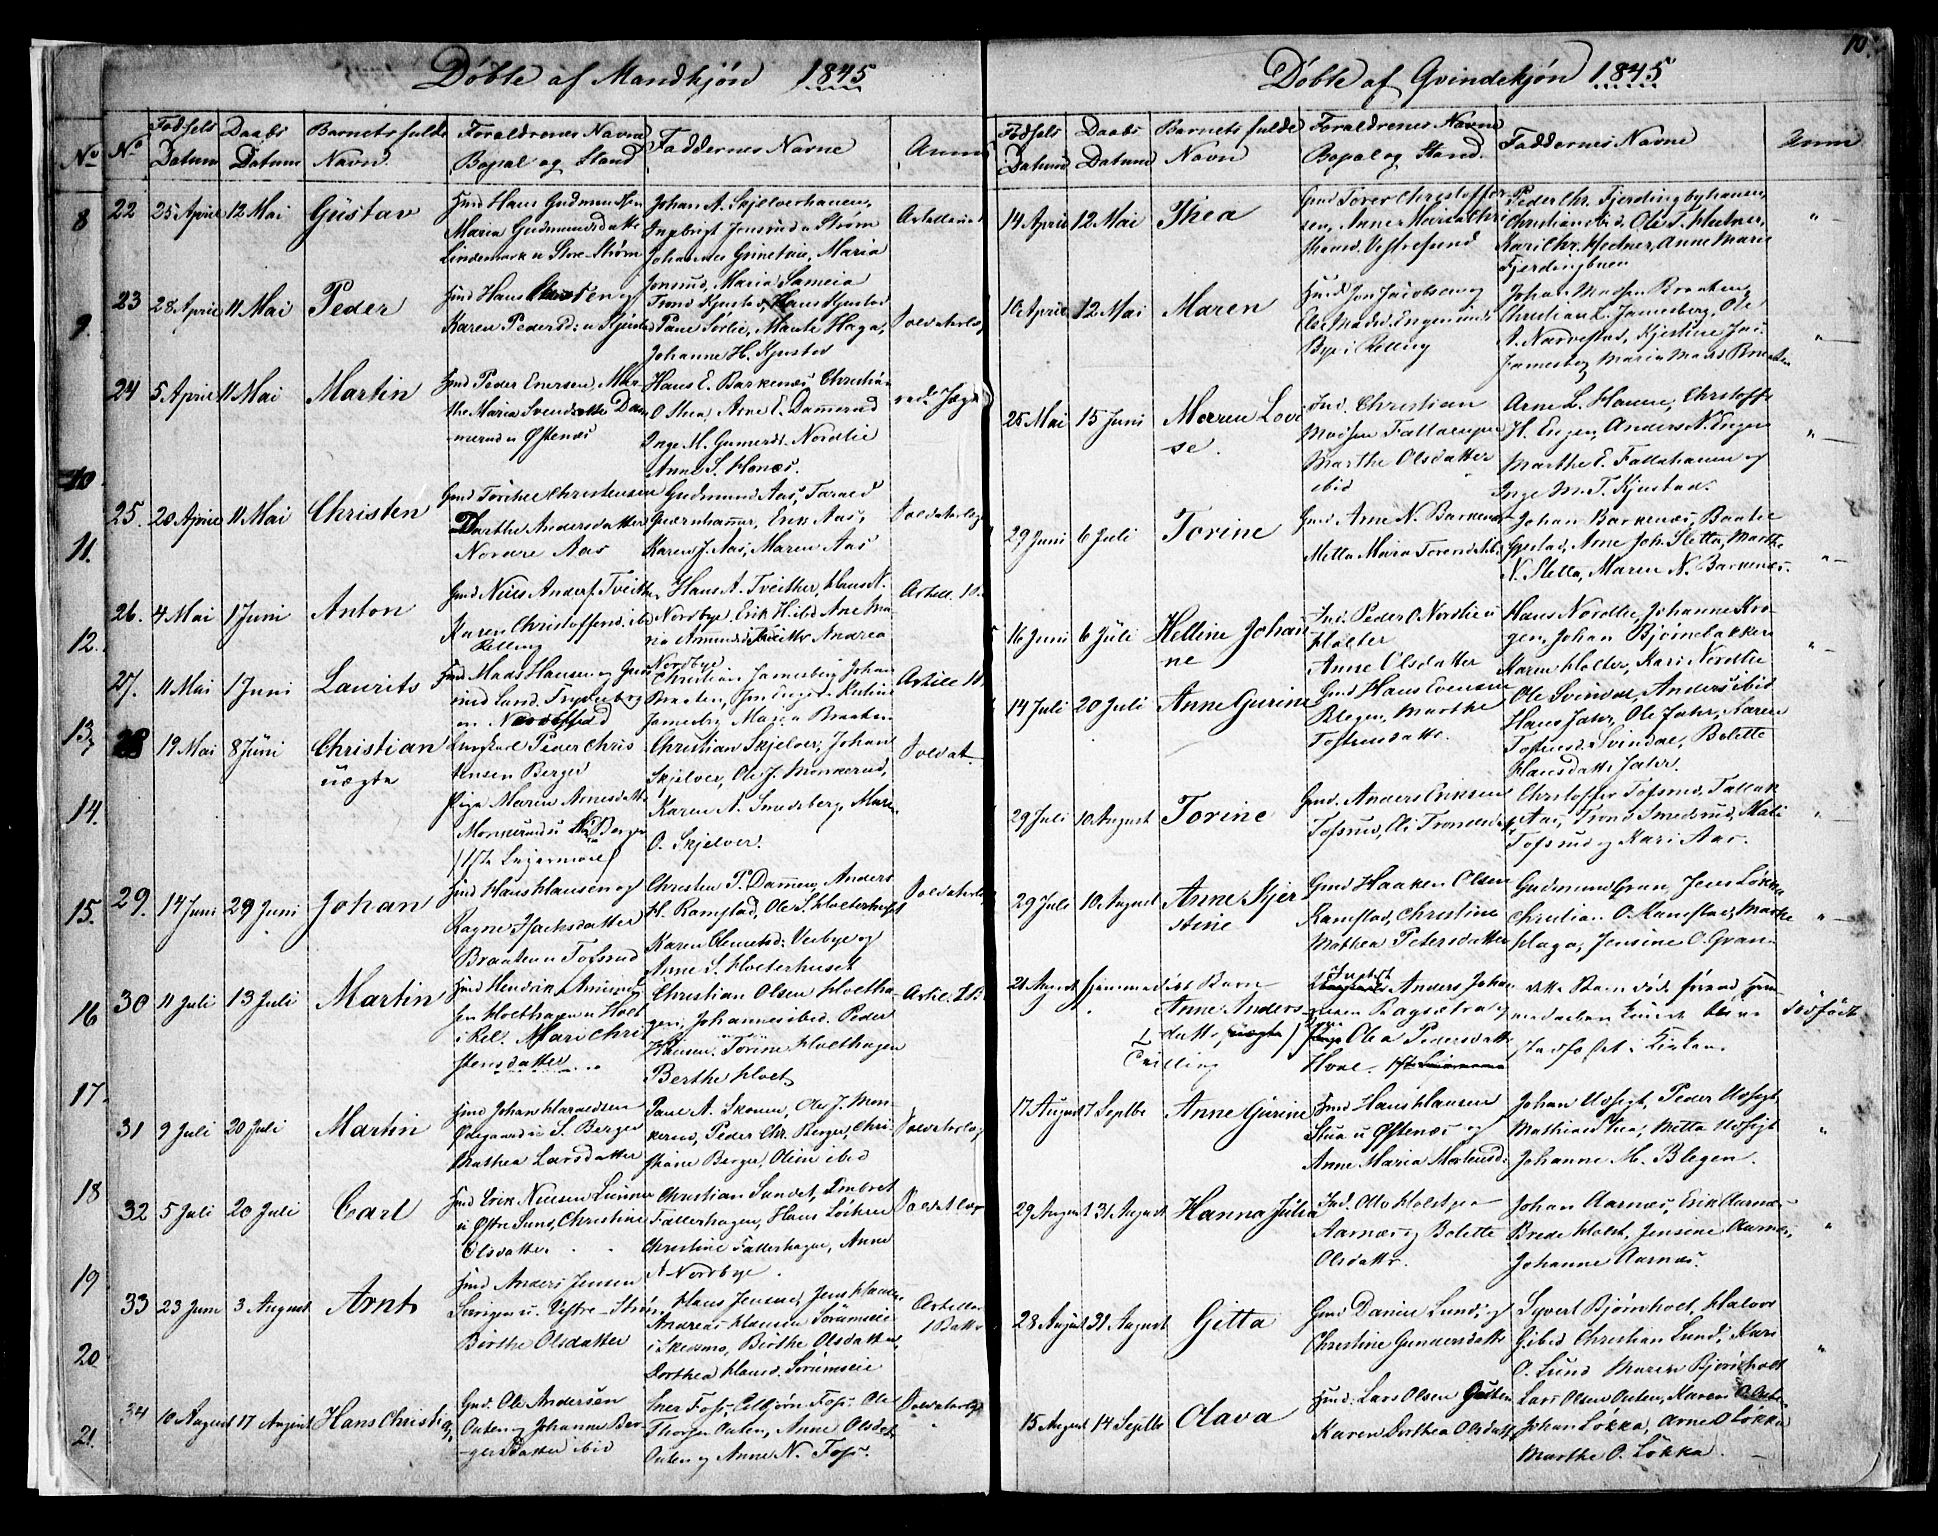 10.
Døbte af Mandkjøn 1845
No No Fødsels Datum Daabs Datum Barnets fulde Navn Forældrenes Navne Bopæl og Stand Faddernes Navne Anm
8 22 25 April 12 Mai Gustav
Gmd Hans Gudmundsen
Maria Gudmundsdatte
Lindemark u Store-Strøm
Johan A. Skjelverhauen,
Ingbrigt Jonsrud u Strøm
Johannes Grinetaie, Maria
Jonsrud, Maria Sameia
9. 23 28 April 11 Mai Peder
Gmd Hans
Karen Pedersd: u Kjustad
Trond Kjustad, Hans Kjustad
Paul Sørlie, Marte Haga,
Johanne H. Kjustad
Soldaterlæg
24 5 April 11 Mai Martin
Gmd Peder Enersen, Mar-
the Maria Svendsdatte Dam-
merud u Østenæs
Hans E. Barkenæs Christian
O Thea, Arne E. Dammerud
Inge M. Gunersd. Nordlie
Anne S. Honæs.
10
25. 20 April 11 Mai Christen
Gmd Torchel Christensen
Marthe Andersdatter
Nordre Aas
Gudmund Aas, Tarald
Quernhammer, Erik Aas,
Karen J. Aas, Maren Aas
Soldaterlæg
11.
26. 4 Mai 1 Juni Anton
Gmd Niels Anders. Tveither
Karen Christoffersd. ibd
Relling
Hans A. Tveither, Hans N.
Nordbye, Erik H. ibd Ane Ma-
ria Amundsd. Tveitte Andrea
Nordbye
Artell. 10.
12.
27. 11 Mai 1 Juni Laurits
Gmd Mads Hansen og
Christian Jamesberg Johan
Braaten, Jon Engen
Jamesberg Maria Braaten
Artill 10
13 28 19 Mai 8 Juni Christian
uægte
Ungkarl Peder Chris
tensen Berger
Pige Maren Arnesdatte
Monkerud u Berger
(1ste Leiermaal)
Christian Skjelver, Johan
Skjelver, Ole J. Monkerud,
Karen N. Smedsberg, Maren
O. Skjelver.
Soldat.
14.
15. 29. 14 Juni 29 Juni Johan
Gmd Hans Hansen og
Ragne Isachsdatter
Braaten u Tofsrud
Christen P. Dammen, Anders
H. Ramstad, Ole S. Holterhuset
Karen Clemetsd: Verbye og
Anne S. Holterhuset
Soldaterlæg
16 30 11 Juli 13 Juli Martin
Gmd Hendrik Amund
sen Holthagen u Holt
i Rel. Mari Chri
stensdatter
Christian Olsen Holtha-
gen, Johannes ibid. Peder
Hansen. Torine Holthagen
Berthe Holt
17.
31 9 Juli 20 Juli Martin
Gmd Johan Haraldsen
Ødegaard u S. Berger
Mathea Larsdatter
Paul A. Skouen, Ole J. Mon-
kerud, Peder Chr. Berger, Chri-
stiane Berger, Oline ibid
Soldaterlæg
18
32 5 Juli 20 Juli Carl
Gmd Erik Nielsen Lunner
u Østre Sund, Christine
Olsdatter
Christian Sundet, Embret
Fallerhagen, Hans Løkken
Christine Fallerhagen, Anne
N. Nordbye.
Soldatlæg
19
33 23 Juni 3 August Arnt
Gmd Anders Jensen
u. Vestre-Strøm
Birthe Olsdatter
Hans Jensen, Jens Hansen
Andreas Hansen Sørumseie
i Skedsmo, Birthe Olsdatter,
Dorthea Hansd. Sørumseie
Artilleri
1 Batt.
20
34 10 August 17 August Hans Christian
Gmd. Ole Andersen
Outen og Johanne Ber-
gersdatter ibid
Iver Foss, Elbjørn Foss. Ole
Thorsen Outen, Anne Olsdat.
Outen og Anne N. Foss.
Soldaterlæg
21.
Døbte af Qvindekjøn 1845
Fødsels Datum Daabs Datum Barnets fulde Navn Forældrenes Navne Bopæl og Stand Faddernes Navne Anm
14 April 12 Mai Thea
Gmd Torer Christoffer
sen, Anne Maria Chri
stiansd. Vestresund
Peder Chr. Fjerdingbyhauen,
Christian ibid. Ole T. Hutner,
Kari Chr. Hutner, Anne Marie
Fjerdingbuen
16 April 12 Mai Maren
Gmd Jon Jacobsen og
Else Madsd. Engen under
Bye i Relling
Johan Madsen Braaten,
Christian L. Jamesberg, Ole
A. Narvestad, Kjerstine Ja
Jamesberg Maria Mads Braaten
25 Mai 15 Juni Maren Lovi
se.
Ind. Christian
Madsen Fallaeyer
Marthe Olsdatter
ibid
Arne L. Hauen, Christoffer
H. Engen, Anders N. Engen
Marthe E. Fallahauen og
Inge M. T. Kjustad.
29 Juni 6 Juli Torine
Gmd Arne N. Barkenæs
Mette Maria Torersd. ibd
Johan Barkenæs, Baate
Gystad, Arne Joh. Sletta, Marthe
N. Sletta, Maren N. Barkenæs.
16 Juni 6 Juli Helline Johan
ne
Ind. Peder O. Nordlie u
Holter
Anne Olsdatter
Hans Nordlie, Johanne Kro
gen, Johan Bjørnebakken
Karen Holter, Kari Nordlie
14 Juli 20 Juli Anne Gurine
Gmd Hans Evensen
Blegen, Marthe
Tostensdatte.
Ole Svindal, Anders ibid
Hans Jahr, Ole Jahr, Karen
Tostensd. Svindal, Bolette
Hansdatte Jaler.
29 Juli 10 August Torine
Gmd. Anders Eriksen
Tofsrud, Eli Trondsd.
Christoffer Tofsrud, Fallak
Aas, Trond Smedsrud, Mali
Tofsrud og Kari Aas.
29 Juli 10 August Anne Kjer
stine
Gmd Haaken Olsen
Ramstad, Christine
Mathea Petersdatter
Gudmund Gran, Jens Løkka
Christian O. Ramstad, Marthe
Haga, Jensine O. Gran
21 August hjemmedøbt Barn
Anne Anders
datte uægte
Tvilling
Anders Johan
nesen Bagsætra
Olea Pedersdatte
Hval.
dette Barn døde førend hjem
medaaben kunde blive
stadfæstet i Kirken
Dødfødt
17 August 7 Septbr Anne Gurine
Gmd Hans Hansen
Stua u Østenæs og
Anne Maria Mortensd:
Johan Udsigt, Peder Udsigt
Mathias Thea, Mette Udsigt
Johanne M. Blegen.
29 August 31 August Hanna Julia
Ind. Otto Holst
Aarnæs og Bolette
Olsdatte.
Johan Aarnæs, Erik Aarnæs
Brede Holst, Jensine Aarnæs,
Johanne Aarnæs.
28 August 31 August Gitta
Gmd Daniel Lund, og
Christine Gundersdatte
Syvert Bjørnholt, Halvor
ibid Christian Lund, Kari
O. Lund Maren Bjørnholt
15 August 14 Septbr Olava
Gmd. Lars Olsen Gutten
Karen Dorthea Olsdatte
Lars Olsen Outen, Karen O. Outen
Johan Løkka, Arne O Løkka
Marthe O. Løkka.